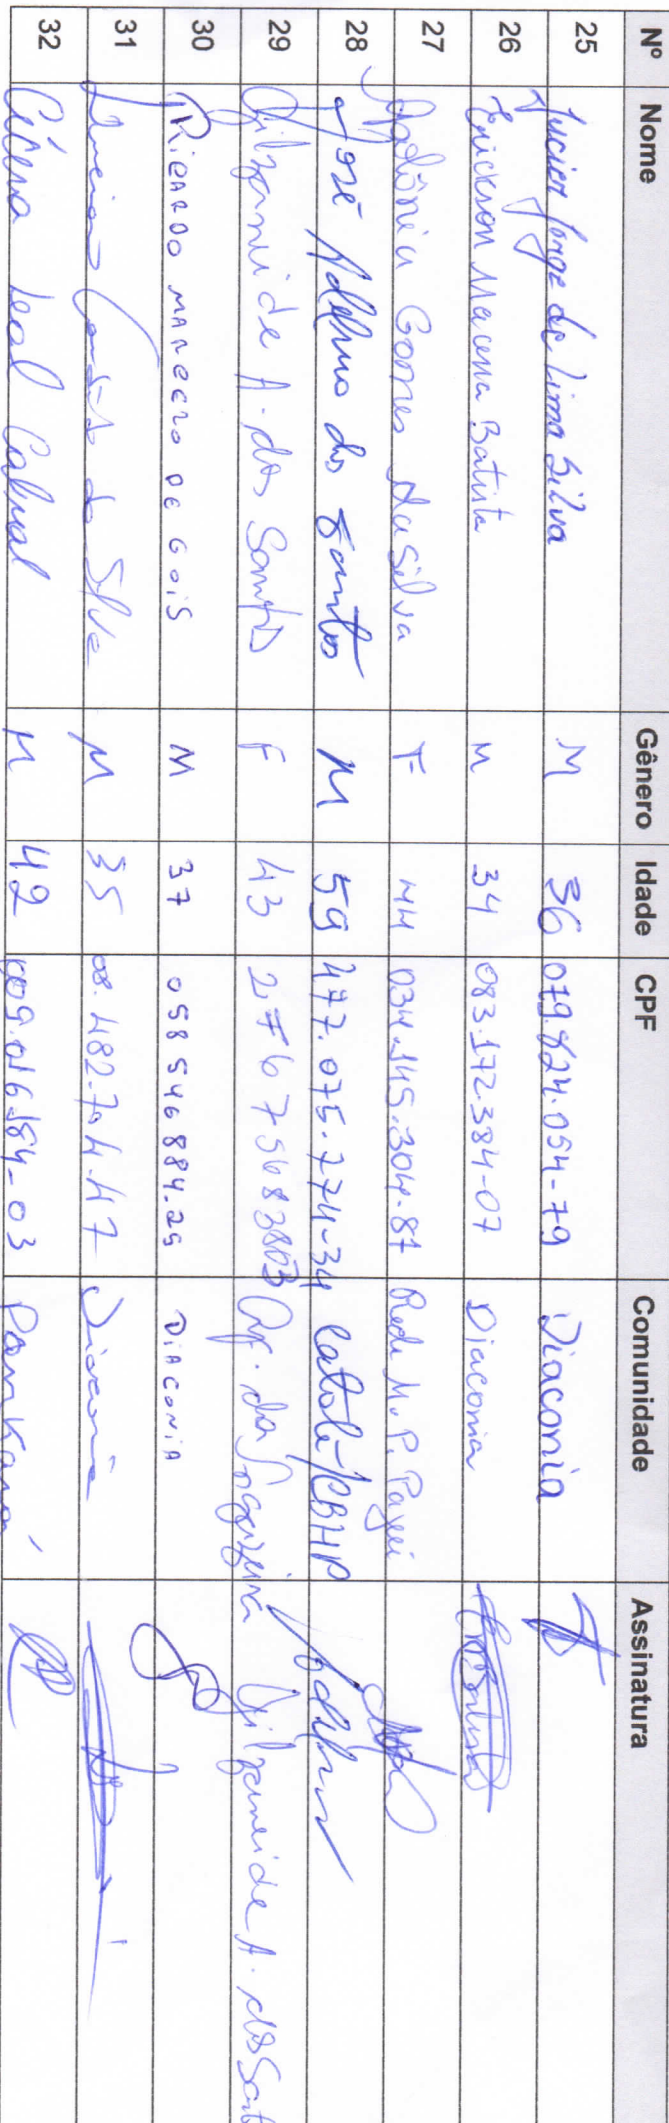 Nº Nome Gênero Idade CPF Comunidade Assinatura
25 Jucier Jorge de Lima Silva M 36 079.824.054-79 Diaconia
26 Erickson Macena Batista M 34 083.172.384-07 Diaconia
27 Apolônia Gomes da Silva F 44 034.145.304-87 Rede M. P. Pajeú
28 José Adelmo dos Santos M 59 477.075.774-34 Catolé/CBHP Adelmo
29 Gilzaneide A. dos Santos F 43 27675683803 da Gilzaneide A. dos Sant
30 RICARDO DE GOIS M 37 058546884.25 DIACONIA
31 da Silva M 35 08.482.704-47 Diaconia
32 Cícero Leal Cabral M 42 009.016.184-03 Pankará